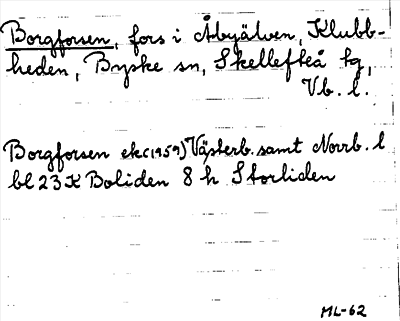 Borgforsen, fors i Åbyälven, Klubb-
heden, Byske sn, Skellefteå tg,
Vb. l.
Borgforsen ek (1959) Västerb. samt Norrb. l
bl 23 K Boliden 8 h Storliden
ML-62